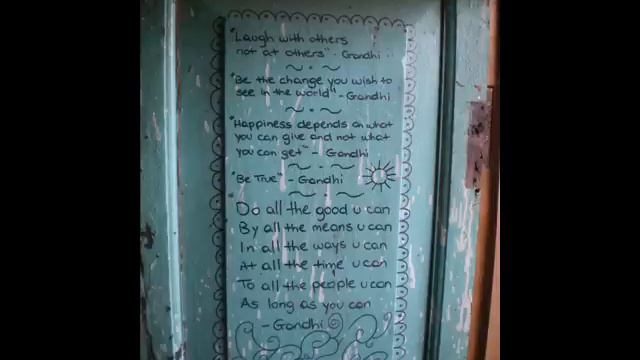 "Laugh with others
not at others" - Gandhi
"Be the change you wish to
see in the world" - Gandhi
"Happiness depends on what
you can give and not what
you can get" - Gandhi
"Be True" - Gandhi
"
Do all the good u can
By all the means u can
In all the ways u can
At all the time u can
To all the people u can
As long as you can
- Gandhi